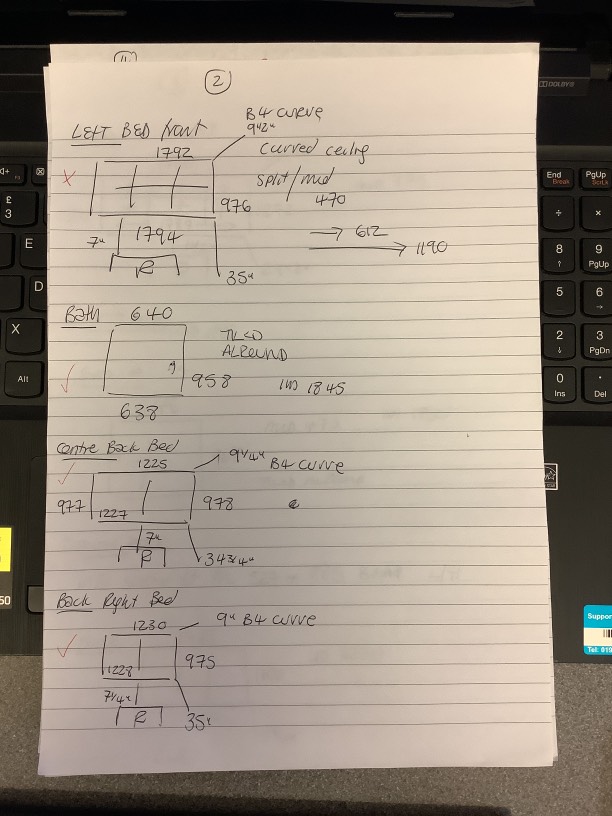 2
LEFT BED front
B4 curve
9"2"
1792
curved ceiling
split/mid
976
470
7"
1794
612
1190
R
35"
Bath 640
TILED
ALROUND
958
1845
638
Centre Back Bed
1225
9 1/4" B4 curve
977
1227
978
7"
R
34 3/4"
Back Right Bed
1230
9" B4 curve
1228
975
7 1/4"
R
35"
DOLBY
End
Break
PgUp
ScrLk
£
3
÷
×
E
8
9
PgUp
D
5
6
X
2
3
PgDn
Alt
0
Ins
.
Del
50
Support
Tel: 019